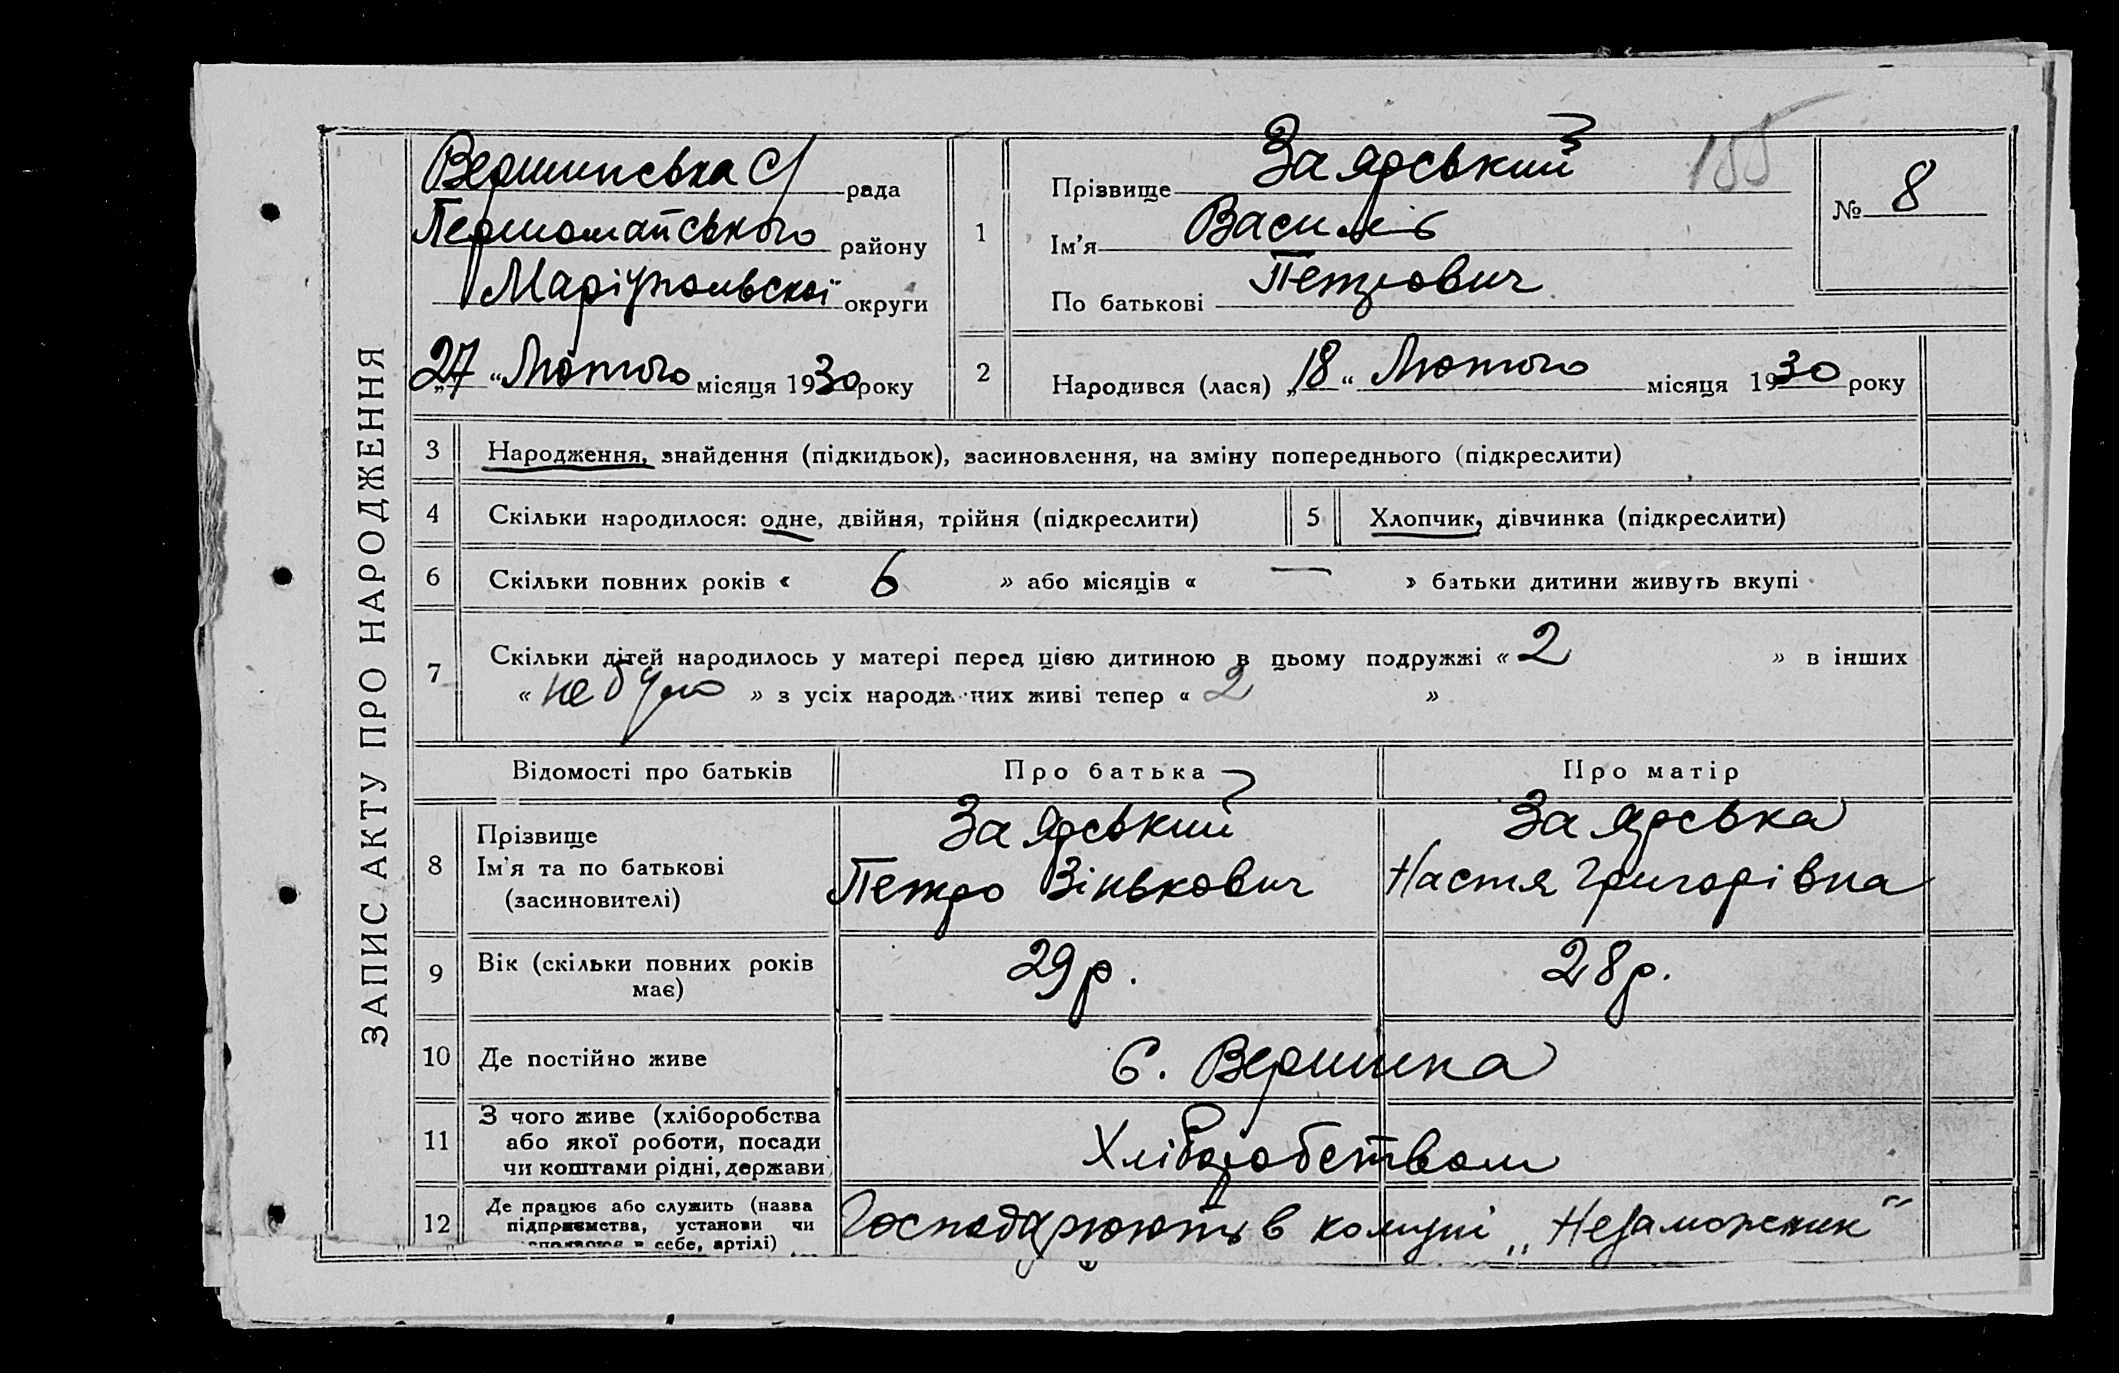 ЗАПИС АКТУ ПРО НАРОДЖЕННЯ
Вершинська С/ рада
Першомайського району
Маріупольської округи
„27“ Лютого місяця 1930 року
1
Прізвище Заярський
Ім'я Василь
По батькові Петрович
155
№ 8
2
Народився (лася) „18“ Лютого місяця 1930 року
3 Народження, знайдення (підкидьок), засиновлення, на зміну попереднього (підкреслити)
4 Скільки народилося: одне, двійня, трійня (підкреслити) 5 Хлопчик, дівчинка (підкреслити)
6 Скільки повних років « 6 » або місяців « — » батьки дитини живуть вкупі
7 Скільки дітей народилось у матері перед цією дитиною в цьому подружжі « 2 » в інших
« не було » з усіх народжених живі тепер « 2 »
Відомості про батьків Про батька Про матір
8
Прізвище
Ім'я та по батькові
(засиновителі)
Заярський
Петро Зінькович
Заярська
Настя Григорівна
9
Вік (скільки повних років
має)
29 р.
28 р.
10 Де постійно живе
С. Вершина
11
З чого живе (хліборобства
або якої роботи, посади
чи коштами рідні, держави
Хліборобством
12
Де працює або служить (назва
підприємства, установи чи
в себе, артілі)
Господарюють в комуні „Незаможник"